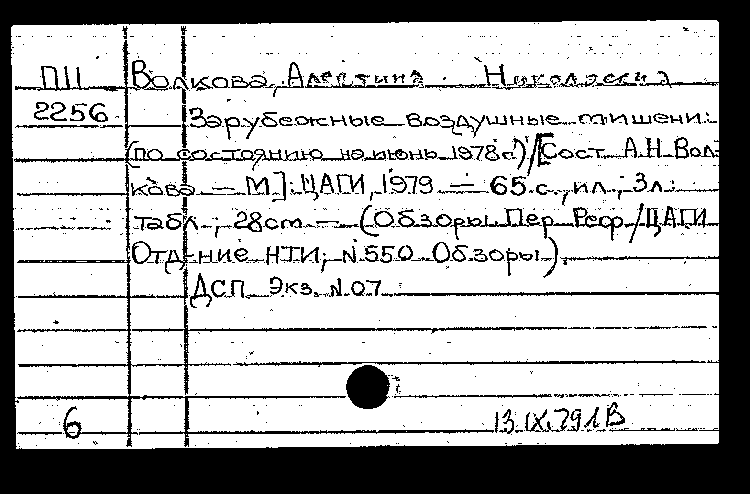 ПII Волкова, Алевтина Николаевна
2256 Зарубежные воздушные мишени:
(по состоянию на июнь 1978г.)/[Сост. А.Н. Вол-
кова. — М.]: ЦАГИ, 1979 — 65 с., ил., 3л.
табл.; 28см — (Обзоры. Пер. Реф./ЦАГИ
Отд-ние НТИ; N 550 Обзоры).
ДСП Экз. N 07
6 13.IX.79г